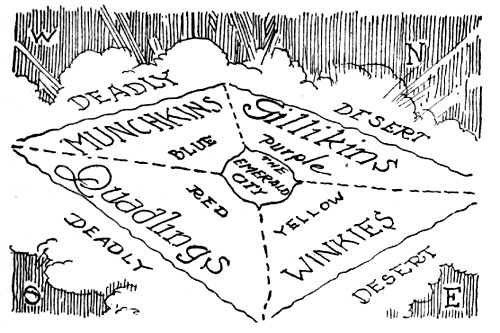 W
N
DEADLY
DESERT
MUNCHKINS
Gillikins
BLUE
purple
THE
EMERALD
CITY
Quadlings
RED
YELLOW
WINKIES
DEADLY
DESERT
S
E